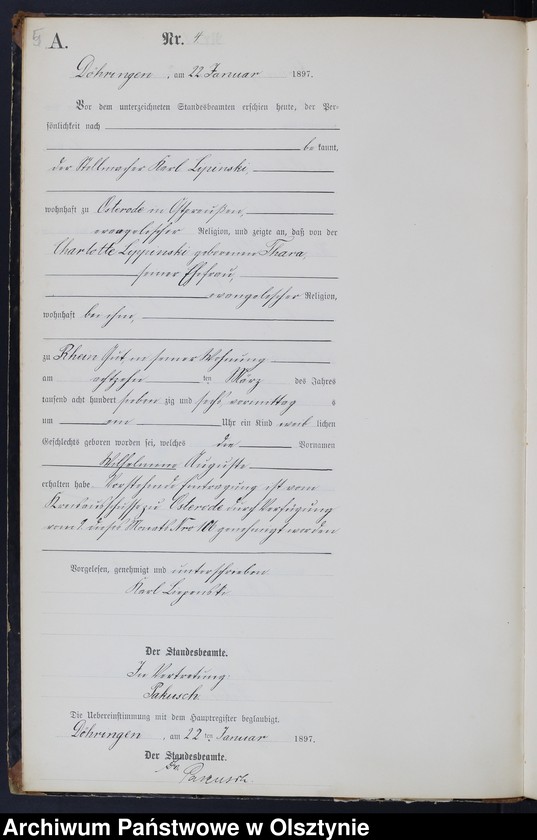 A.
Nr. 4
Döhringen, am 22 Januar 1897.
Vor dem unterzeichneten Standesbeamten erschien heute, der Per-
sönlichkeit nach
be kannt,
der Stellmacher Karl Lipinski,
wohnhaft zu Osterode in Ostpreußen,
evangelischer Religion, und zeigte an, daß von der
Charlotte Lippinski geborenen Thara,
seiner Ehefrau,
evangelischer Religion,
wohnhaft bei ihm,
zu Rhein Gut in seiner Wohnung
am achtzehn ten März des Jahres
tausend acht hundert sieben zig und sechs vormittag s
um ein Uhr ein Kind weib lichen
Geschlechts geboren worden sei, welches die Vornamen
Wilhelmine Auguste
erhalten habe Vorstehende Eintragung ist vom
Kreisausschusse zu Osterode durch Verfügung
vom dieses Monats Nro genehmigt worden
Vorgelesen, genehmigt und unterschrieben
Karl Lipinski
Der Standesbeamte.
In Vertretung
Pakusch.
Die Uebereinstimmung mit dem Hauptregister beglaubigt.
Döhringen, am 22 ten Januar 1897.
Der Standesbeamte.
Pakusch
Archiwum Państwowe w Olsztynie